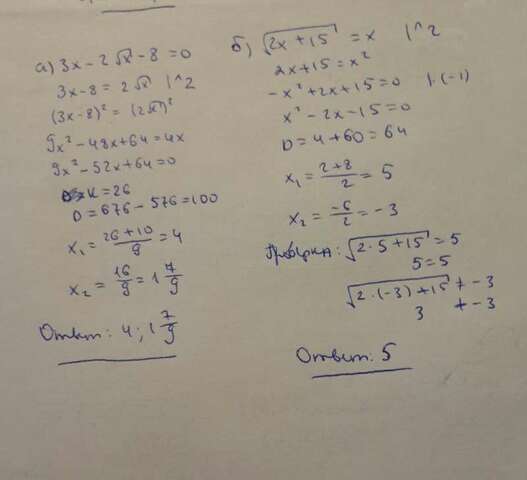 а) 3x - 2√x - 8 = 0
3x - 8 = 2√x |^2
(3x - 8)² = (2√x)²
9x² - 48x + 64 = 4x
9x² - 52x + 64 = 0
k = 26
D = 676 - 576 = 100
x₁ = (26 + 10)/9 = 4
x₂ = 16/9 = 1 7/9
Ответ: 4; 1 7/9
б) √(2x + 15) = x |^2
2x + 15 = x²
-x² + 2x + 15 = 0 |·(-1)
x² - 2x - 15 = 0
D = 4 + 60 = 64
x₁ = (2 + 8)/2 = 5
x₂ = -6/2 = -3
Проверка: √(2·5 + 15) = 5
5 = 5
√(2·(-3) + 15) ≠ -3
3 ≠ -3
Ответ: 5